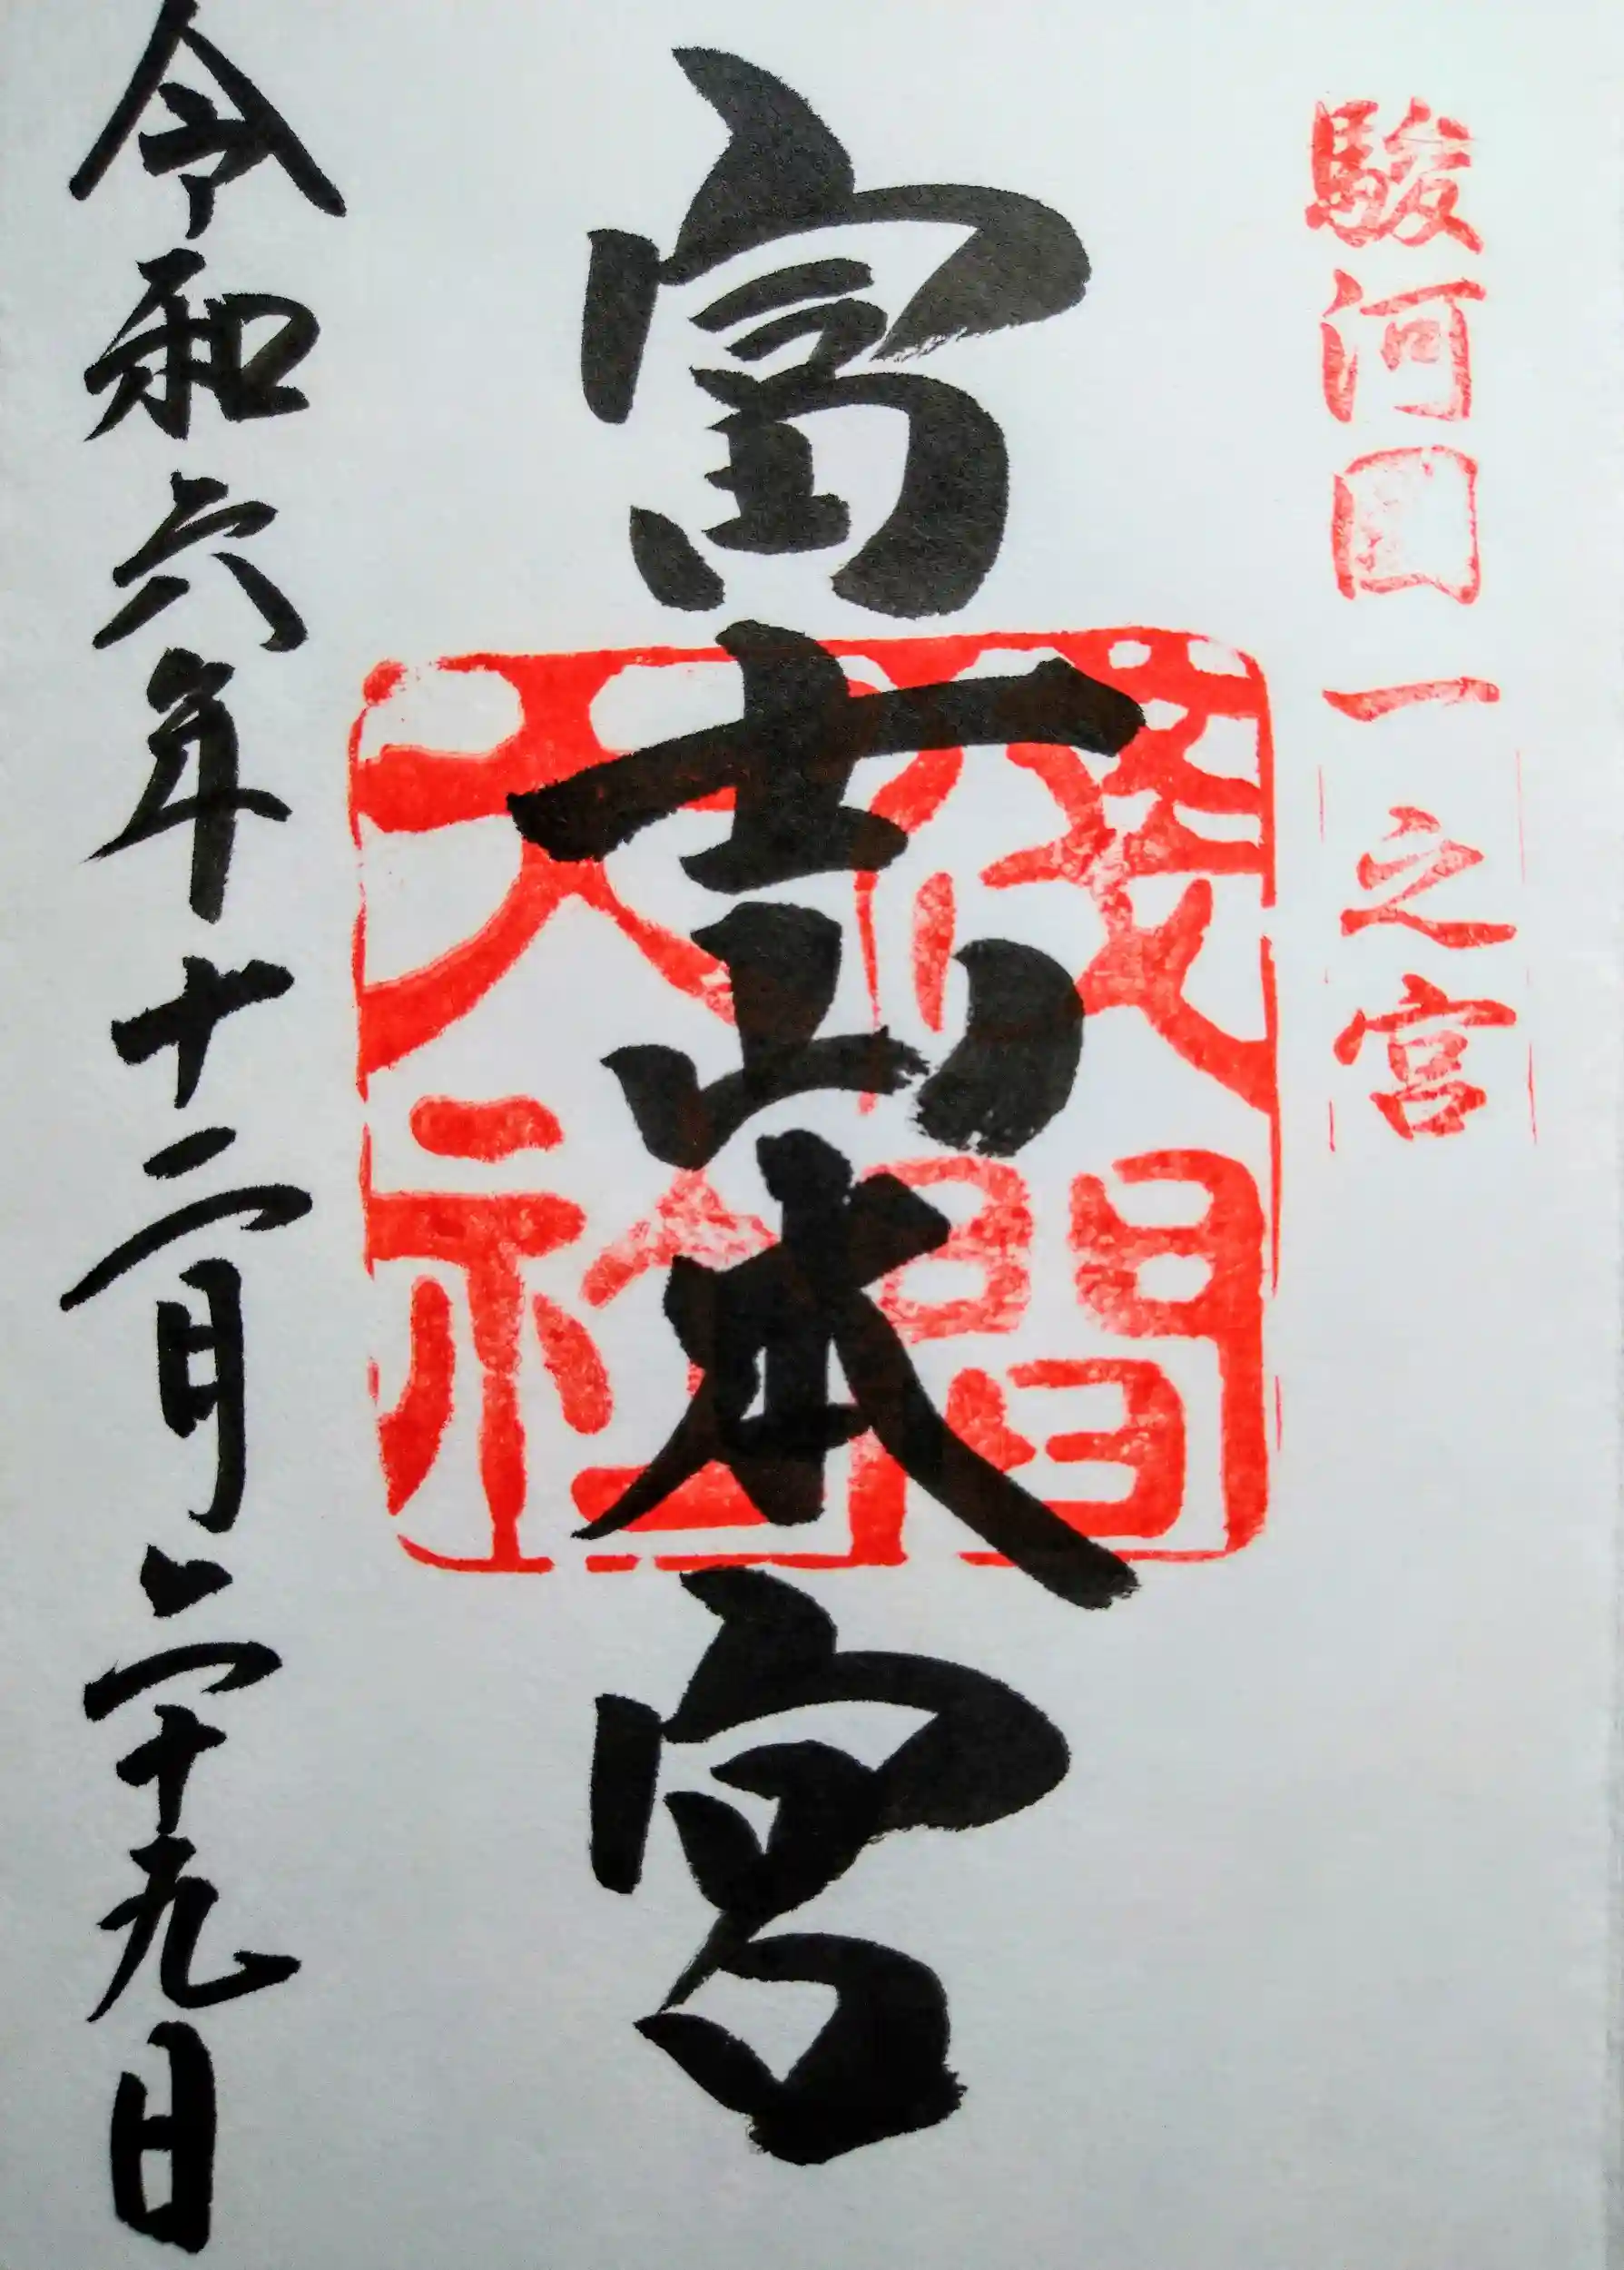 駿河國一之宮
富士山本宮
浅間
大社
令和六年十二月二十九日